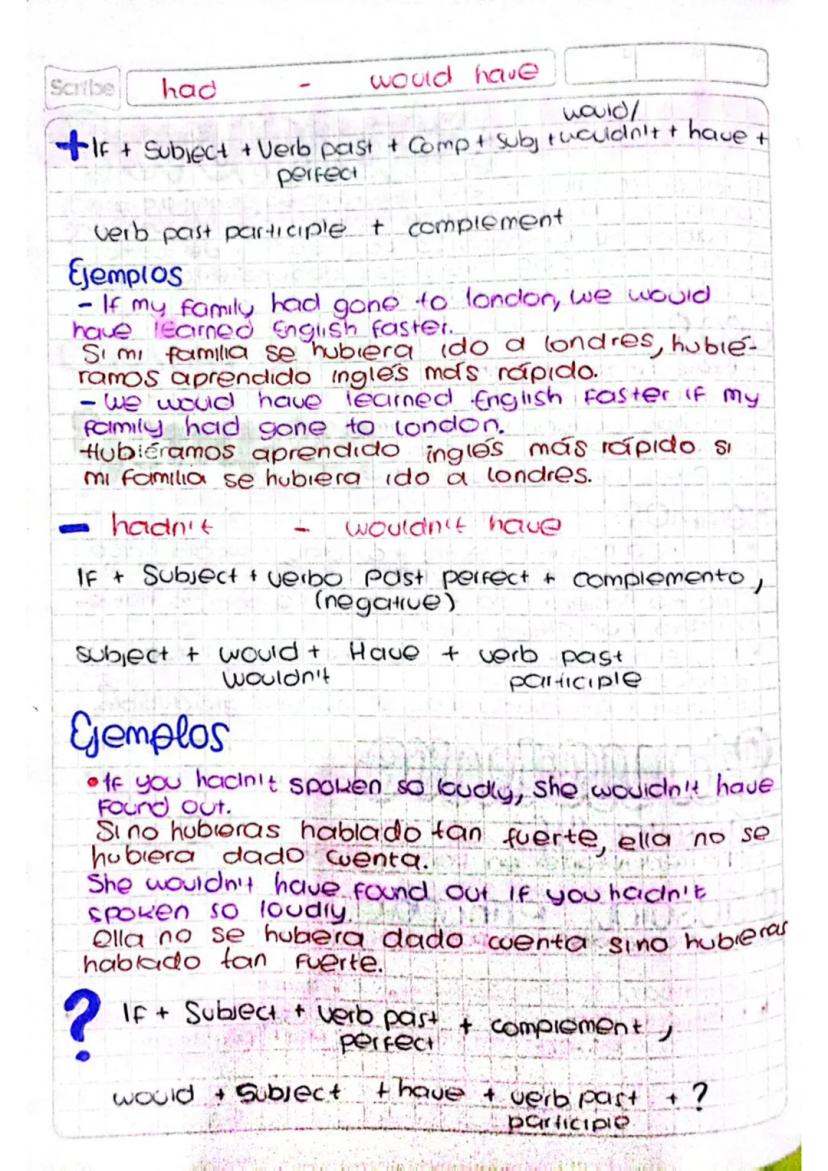 Scribe
had - would have
would/
+ If + Subject + Verb past + Comp + Subj + wouldn't + have +
perfect
verb past participle + complement
Ejemplos
- If my family had gone to london, we would
have learned English faster.
Si mi familia se hubiera ido a londres, hubié-
ramos aprendido inglés más rápido.
- We would have learned English faster if my
family had gone to london.
Hubiéramos aprendido inglés más rápido si
mi familia se hubiera ido a londres.
- hadn't - wouldn't have
If + Subject + verbo past perfect + complemento,
(negative)
subject + would + Have + verb past
wouldn't participle
Ejemplos
• If you hadn't spoken so loudly, she wouldn't have
found out.
Si no hubieras hablado tan fuerte, ella no se
hubiera dado cuenta.
She wouldn't have found out if you hadn't
spoken so loudly.
Ella no se hubera dado cuenta sino hubieras
hablado tan fuerte.
? If + Subject + verb past + complement,
perfect
would + Subject + have + verb past + ?
participle